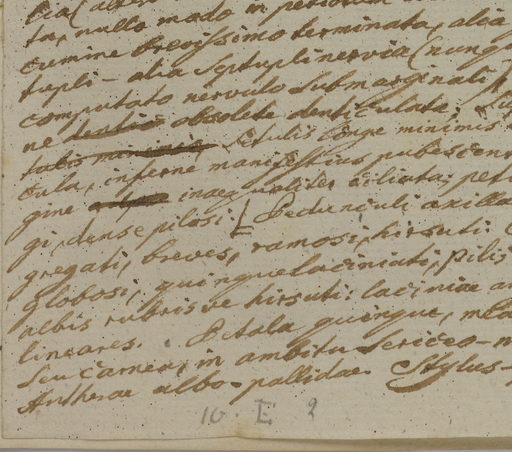 ta, nullo modo in
cumine brevissimo terminata, alia
tupli- alia septuplinervia (nunqu
computato nervulo submarginali
ne obsolete denticulata,
setulis longe minimis
tula, inferne manifestius pubescen
gine inaequaliter ciliata; pet
gi, dense pilosi. Pedunculi axilla
gregati, breves, ramosi, hirsuti.
globosi, quinquelaciniati, pilis
albis rubrisve hirsuti: laciniae
lineares. Petala quinque,
seu carnea, in ambitu sericeo-
Antherae albo-pallidae. Stylus
10. E 2